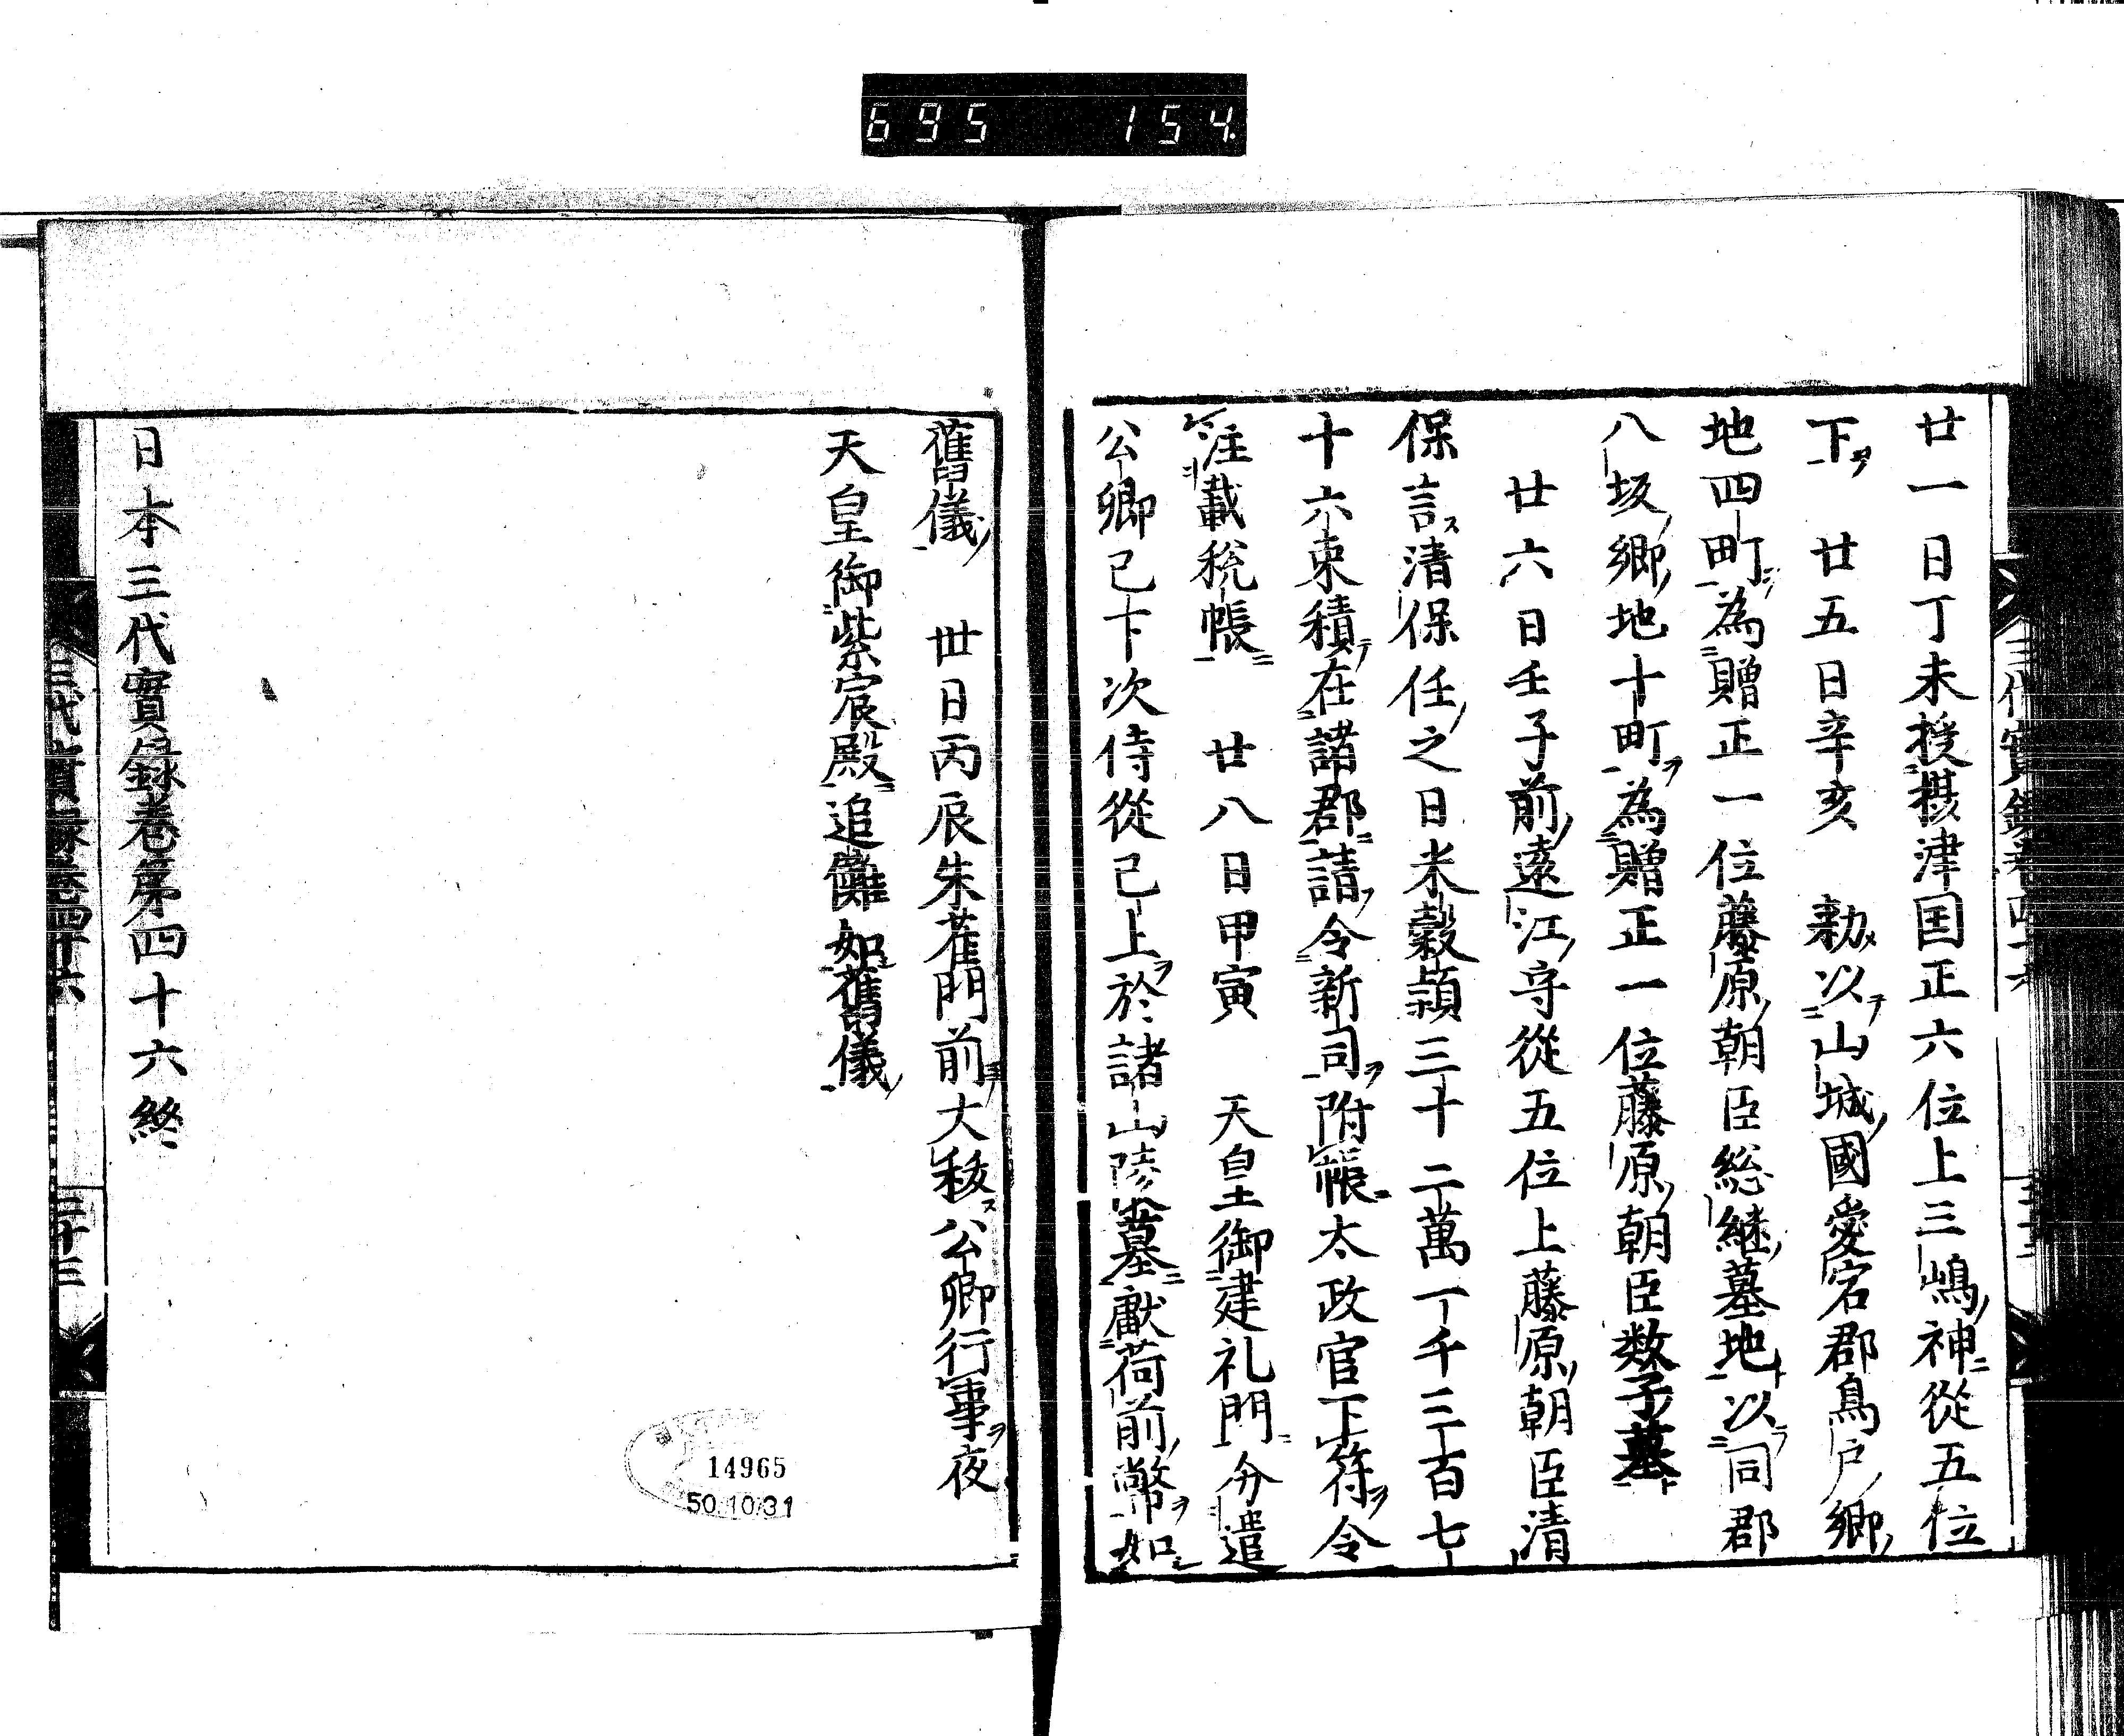 695 154
廿一日丁未授攝津国正六位上三嶋神從五位
下 廿五日辛亥 勅以山城國愛宕郡鳥戸鄉
地四町為贈正一位藤原朝臣総継墓地以同郡
八坂鄉地十町為贈正一位藤原朝臣数子墓
廿六日壬子前遠江守從五位上藤原朝臣清
保言清保任之日米穀頴三十二萬一千三百七
十六束積在諸郡請令新司附帳太政官下符令
注載税帳 廿八日甲寅 天皇御建礼門分遣
公卿已下次侍從已上於諸山陵墓獻荷前幣如
舊儀 丗日丙辰朱雀門前大秡公卿行事夜
天皇御紫宸殿追儺如舊儀
日本三代實録卷第四十六終
三代實録卷四十六 二十三
14965
50.10.31